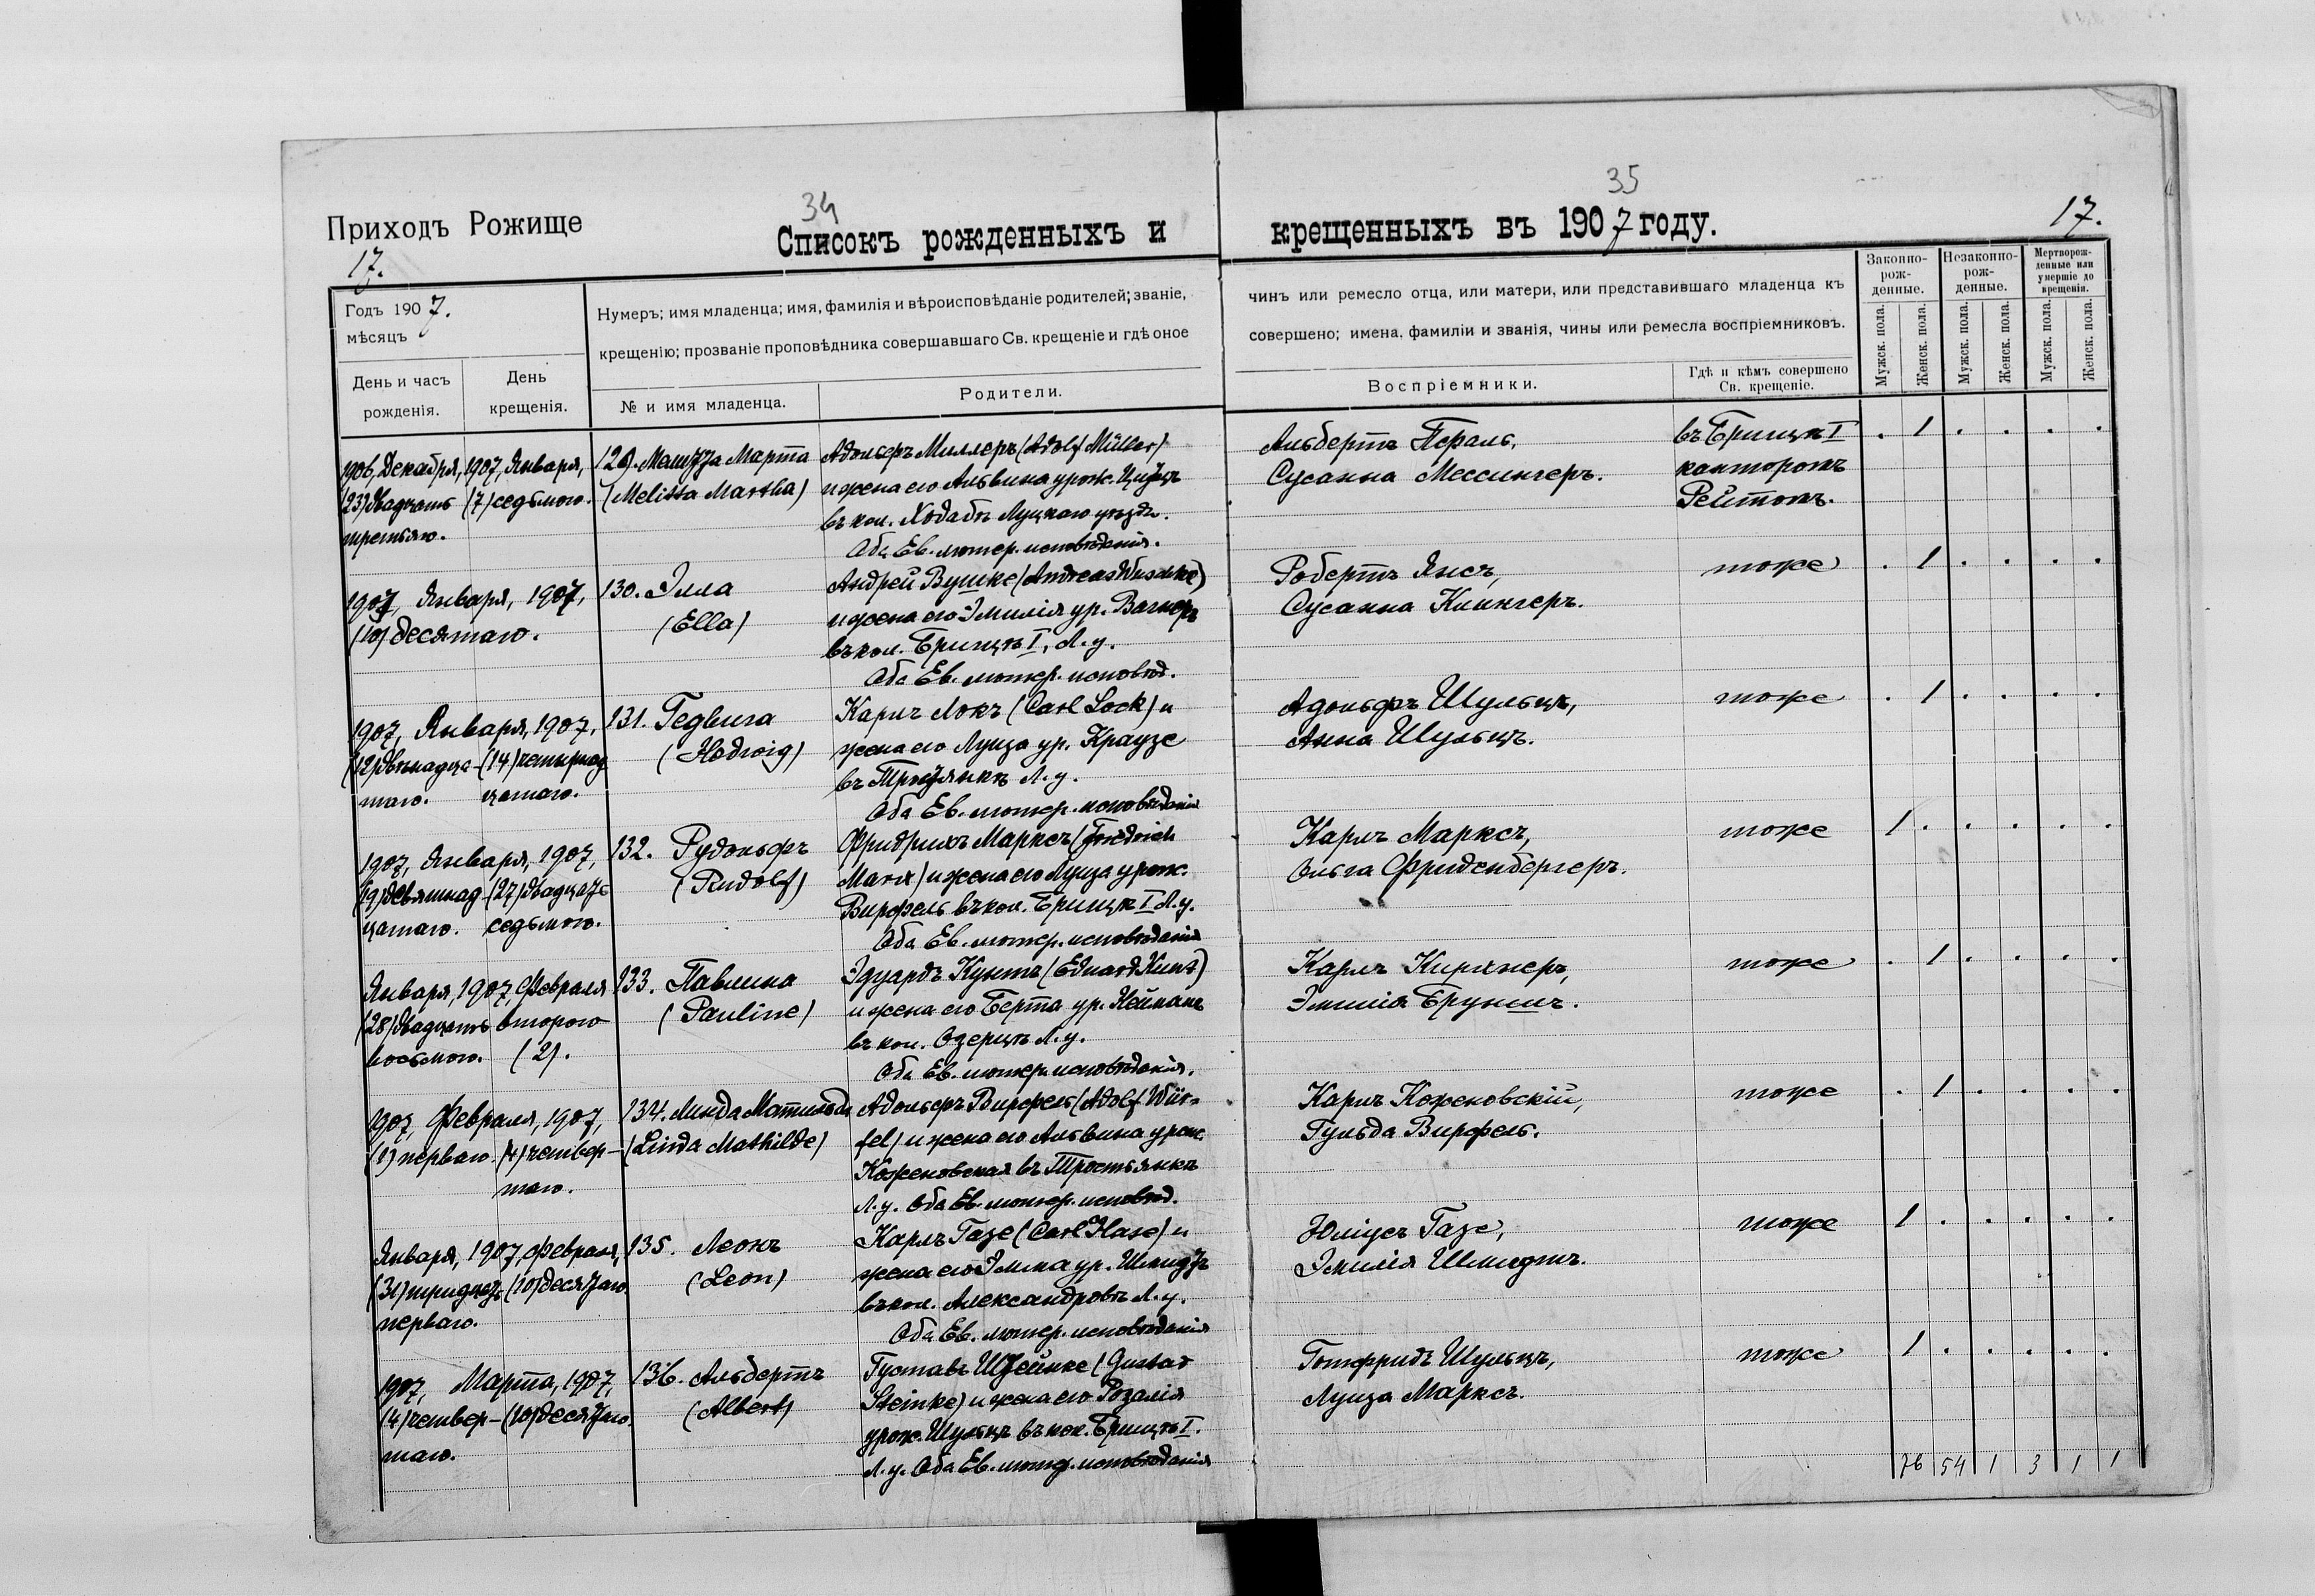 34
35
Приходъ Рожище
Списокъ рожденныхъ и
крещенныхъ въ 1907 году.
17.
17.
Годъ 1907.
мѣсяцъ
День и часъ
рожденія.
День
крещенія.
Нумеръ; имя младенца; имя, фамилія и вѣроисповѣданіе родителей; званіе,
крещенію; прозваніе проповѣдника совершавшаго Св. крещеніе и гдѣ оное
№ и имя младенца.
Родители.
чинъ или ремесло отца, или матери, или представившаго младенца къ
совершено; имена, фамиліи и званія, чины или ремесла воспріемниковъ.
Воспріемники.
Гдѣ и кѣмъ совершено
Св. крещеніе.
Законно-
рож-
денные.
Незаконно-
рож-
денные.
Мертворож-
денные или
умершіе до
крещенія.
Мужск. пола.
Женск. пола.
Мужск. пола.
Женск. пола.
Мужск. пола.
Женск. пола.
1906, Декабря, 1907, Января,
(23) двадцать (7) седьмого.
третьяго.
129. Мелитта Марта
(Melitta Martha)
Адольфъ Миллеръ (Adolf Müller)
и жена его Альвина урож.
въ кол. Луцкаго уѣзда.
Оба Ев. лютер. исповѣданія.
Альбертъ Пфаль,
Сусанна Мессингеръ.
въ Брищи I
канторомъ
. 1 . . . .
1907, Января, 1907,
(10) десятаго.
130. Элла
(Ella)
Андрей Вушке (Andreas Wuschke)
и жена его Эмилія ур. Вагнеръ
въ кол. Брищѣ I, Л. у.
Оба Ев. лютер. исповѣд.
Робертъ Янсъ,
Сусанна Клингеръ.
тоже
. 1 . . . .
1907, Января, 1907,
(12) двѣнадца- (14) четырнад
таго. цатаго.
131. Гедвига
(Hedwig)
Карлъ Локъ (Carl Lock) и
жена его Луиза ур. Краузе
въ Л. у.
Оба Ев. лютер. исповѣданія
Адольфъ Шульцъ,
Анна Шульцъ.
тоже
. 1 . . . .
1907, Января, 1907,
(19) девятнад- (27) двадцать
цатаго. седьмого.
132. Рудольфъ
(Rudolf)
Фридрихъ Марксъ (Friedrich
Marx) и жена его Луиза урож.
Вирфель въ кол. Брищи I Л. у.
Оба Ев. лютер. исповѣданія
Карлъ Марксъ,
Ольга Фриденбергеръ.
тоже
1 . . . . .
Января, 1907, Февраля
(28) двадцать второго
восьмого. (2).
133. Павлина
(Pauline)
Эдуардъ Кунтъ (Eduard Kunt)
и жена его Берта ур. Нейманъ
въ кол. Озерцѣ Л. у.
Оба Ев. лютер. исповѣданія.
Карлъ Кирхнеръ,
Эмилія
тоже
. 1 . . . .
1907, Февраля, 1907,
(1) перваго. (4) четвер-
таго.
134. Линда Матильда
(Linda Mathilde)
Адольфъ Вирфель (Adolf Wür-
fel) и жена его Альвина урож.
Коженовская въ Тростянкѣ
Л. у. Оба Ев. лютер. исповѣд.
Карлъ Коженовскій,
Гульда Вирфель.
тоже
. 1 . . . .
Января, 1907, Февраля,
(31) тридцать (10) десятаго.
перваго.
135. Леонъ
(Leon)
Карлъ Газе (Carl Hase) и
жена его Элма ур. Шмидтъ
въ кол. Александровѣ Л. у.
Оба Ев. лютер. исповѣданія
Юліусъ Газе,
Эмилія Шмидтъ.
тоже
1 . . . . .
1907, Марта, 1907,
(4) четвер- (10) десятаго.
таго.
136. Альбертъ
(Albert)
Густавъ Штейнке (Gustav
Steinke) и жена его Розалія
урож. Шульцъ въ кол. Брищѣ I.
Л. у. Оба Ев. лютер. исповѣданія
Готфридъ Шульцъ,
Луиза Марксъ.
тоже
1 . . . . .
76 54 1 3 1 1